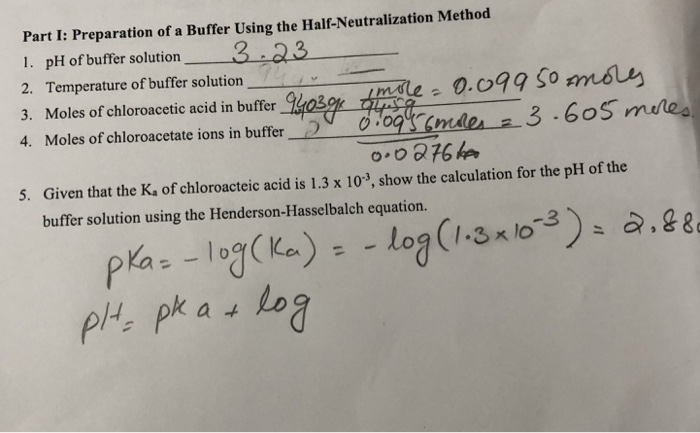 Part I: Preparation of a Buffer Using the Half-Neutralization Method
1. pH of buffer solution 3.23
2. Temperature of buffer solution
3. Moles of chloroacetic acid in buffer 9.403g x 1mole = 0.09950 moles
94.5g
4. Moles of chloroacetate ions in buffer 0.0956moles = 3.605 moles
0.0276
5. Given that the Ka of chloroacteic acid is 1.3 x 10⁻³, show the calculation for the pH of the
buffer solution using the Henderson-Hasselbalch equation.
pKa = -log(Ka) = -log(1.3×10⁻³) = 2.88
pH = pka + log